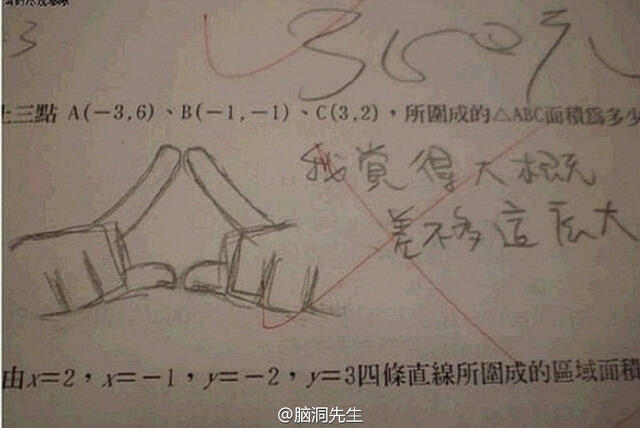 =3
350元
上三點 A(-3,6)、B(-1,-1)、C(3,2),所圍成的△ABC面積為多少
我覺得大概
差不多這么大
由x=2,x=-1,y=-2,y=3四條直線所圍成的區域面積
@脑洞先生